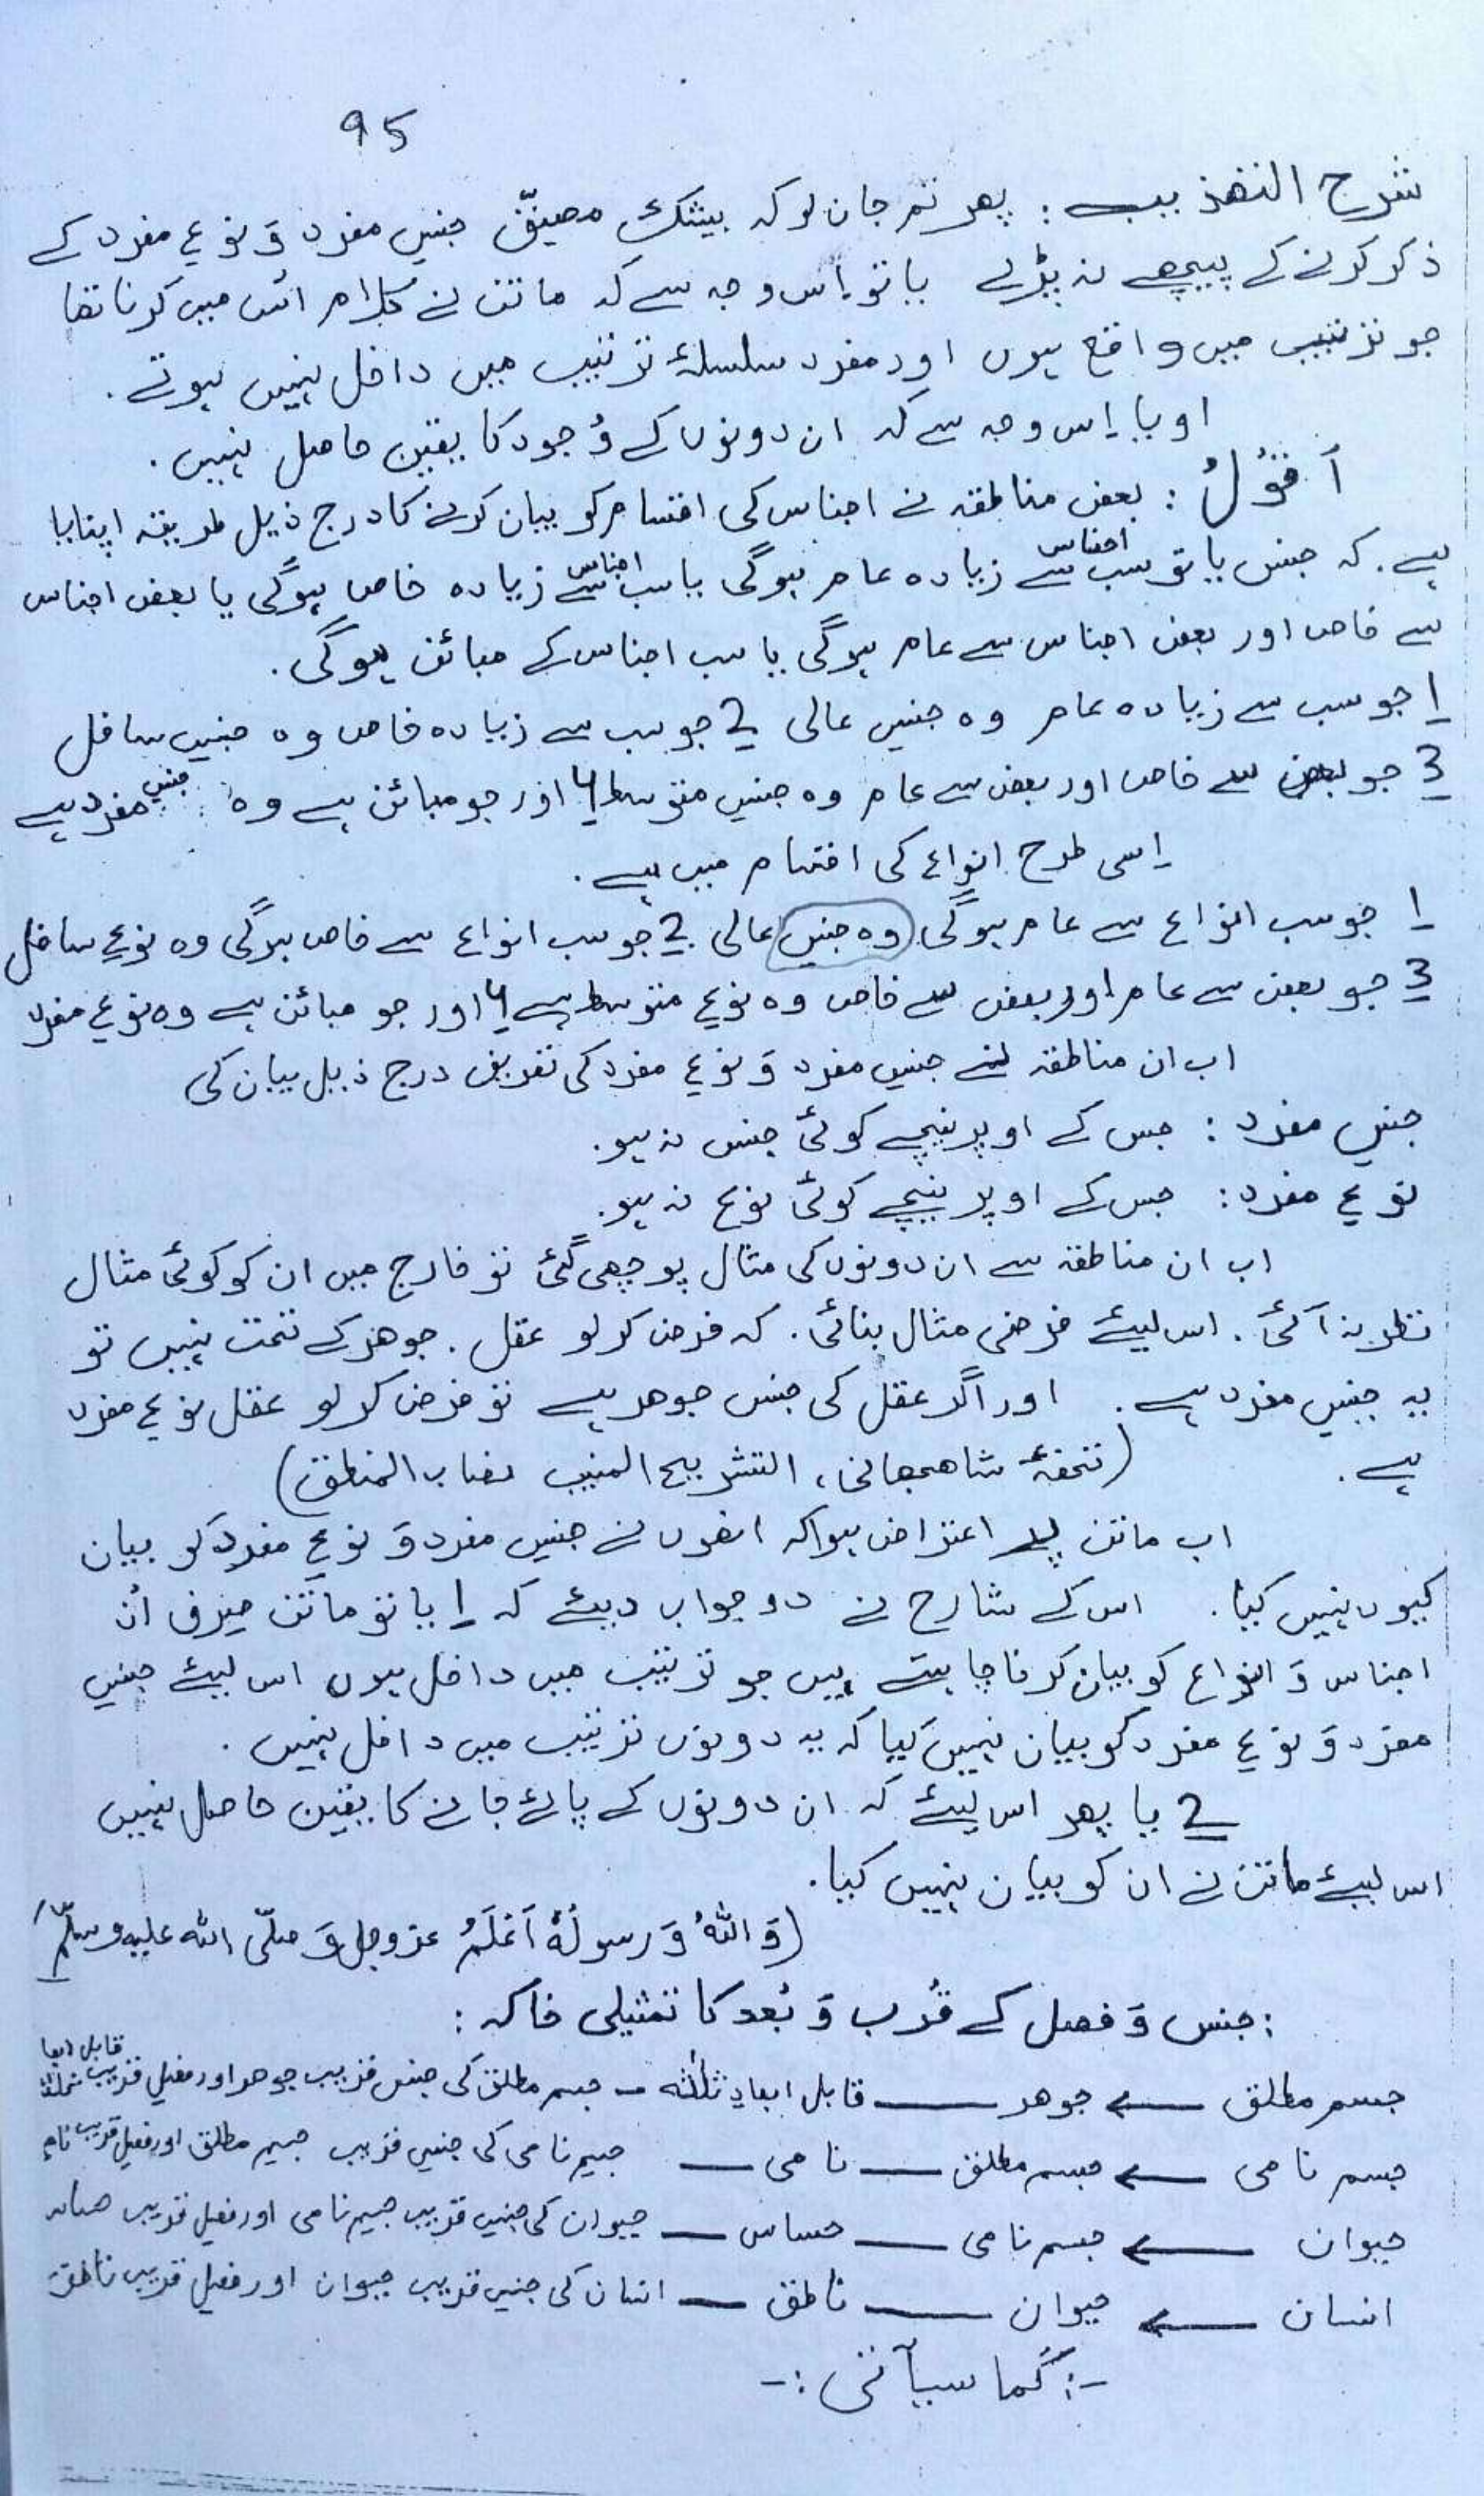 95
شرح التھذیب : پھر تم جان لو کہ بیشک مصنِّف جنسِ مفرد وَ نوعِ مفرد کے
ذکر کرنے کے پیچھے نہ پڑے یا تو اِس وجہ سے کہ ماتن نے کلام اُس میں کرنا تھا
جو ترتیب میں واقع ہوں اور مفرد سلسلۂ ترتیب میں داخل نہیں ہوتے.
اویا اِس وجہ سے کہ ان دونوں کے وُجود کا یقین حاصل نہیں.
أَقُوْلُ : بعض مناطقہ نے اجناس کی اقسام کو بیان کرنے کا درج ذیل طریقہ اپنایا
ہے. کہ جنس یا تو سب اجناس سے زیادہ عام ہوگی یا سب اجناس سے زیادہ خاص ہوگی یا بعض اجناس
سے خاص اور بعض اجناس سے عام ہوگی یا سب اجناس کے مبائن ہوگی.
1 جو سب سے زیادہ عام وہ جنسِ عالی 2 جو سب سے زیادہ خاص وہ جنسِ سافل
3 جو بعض سے خاص اور بعض سے عام وہ جنسِ متوسط 4 اور جو مبائن ہے وہ جنسِ مفرد ہے
اِسی طرح انواع کی اقسام میں ہے.
1 جو سب انواع سے عام ہوگی وہ جنسِ عالی 2 جو سب انواع سے خاص ہوگی وہ نوعِ سافل
3 جو بعض سے عام اور بعض سے خاص وہ نوعِ متوسط ہے 4 اور جو مبائن ہے وہ نوعِ مفرد
اب ان مناطقہ نے جنسِ مفرد وَ نوعِ مفرد کی تعریف درج ذیل بیان کی
جنسِ مفرد : جس کے اوپر نیچے کوئی جنس نہ ہو.
نوعِ مفرد : جس کے اوپر نیچے کوئی نوع نہ ہو.
اب ان مناطقہ سے ان دونوں کی مثال پوچھی گئی تو خارج میں ان کو کوئی مثال
نظر نہ آئی. اس لیئے فرضی مثال بنائی. کہ فرض کر لو عقل. جوھر کے تحت نہیں تو
یہ جنسِ مفرد ہے. اور اگر عقل کی جنس جوھر ہے تو فرض کر لو عقل نوعِ مفرد
ہے. (تحفۂ شاھجھانی، التشریح المنیب نصاب المنطق)
اب ماتن پر اعتراض ہوا کہ انھوں نے جنسِ مفرد وَ نوعِ مفرد کو بیان
کیوں نہیں کیا. اس کے شارح نے دو جواب دیئے کہ 1 یا تو ماتن صِرف اُن
اجناس وَ انواع کو بیان کرنا چاہتے ہیں جو ترتیب میں داخل ہوں اس لیئے جنسِ
مفرد وَ نوعِ مفرد کو بیان نہیں کیا کہ یہ دونوں ترتیب میں داخل نہیں.
2 یا پھر اس لیئے کہ ان دونوں کے پائے جانے کا یقین حاصل نہیں
اس لیئے ماتن نے ان کو بیان نہیں کیا.
(وَاللّٰہُ وَ رسولُہٗ اَعْلَمُ عزوجل وَ صلّی اللہ علیہ وسلّم)
: جنس وَ فصل کے قُرب وَ بُعد کا تمثیلی خاکہ :
جسم مطلق ← جوھر — قابل ابعادِ ثلٰثہ — جسم مطلق کی جنسِ قریب جوھر اور فصلِ قریب قابل ابعاد ثلٰثہ
جسم نامی ← جسم مطلق — نامی — جسمِ نامی کی جنسِ قریب جسم مطلق اور فصلِ قریب نامی
حیوان ← جسم نامی — حساس — حیوان کی جنسِ قریب جسمِ نامی اور فصلِ قریب حساس
انسان ← حیوان — ناطق — انسان کی جنسِ قریب حیوان اور فصلِ قریب ناطق
-: کَما سیأتی :-